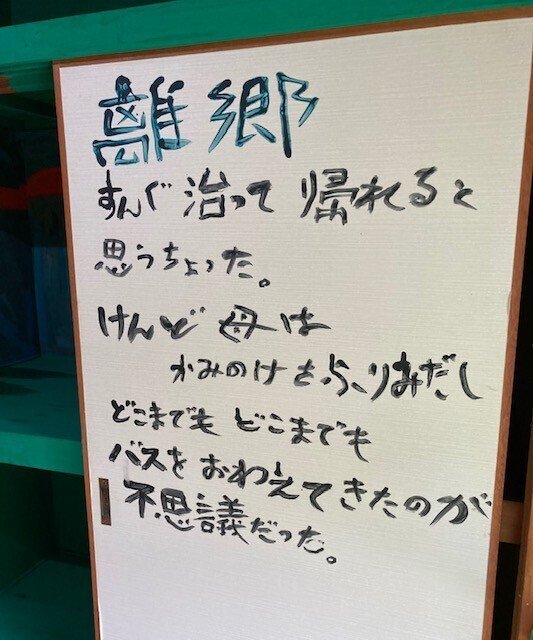 離郷
すんぐ治って帰れると
思うちょった。
けんど母は
かみのけをふりみだし
どこまでもどこまでも
バスをおわえてきたのが
不思議だった。